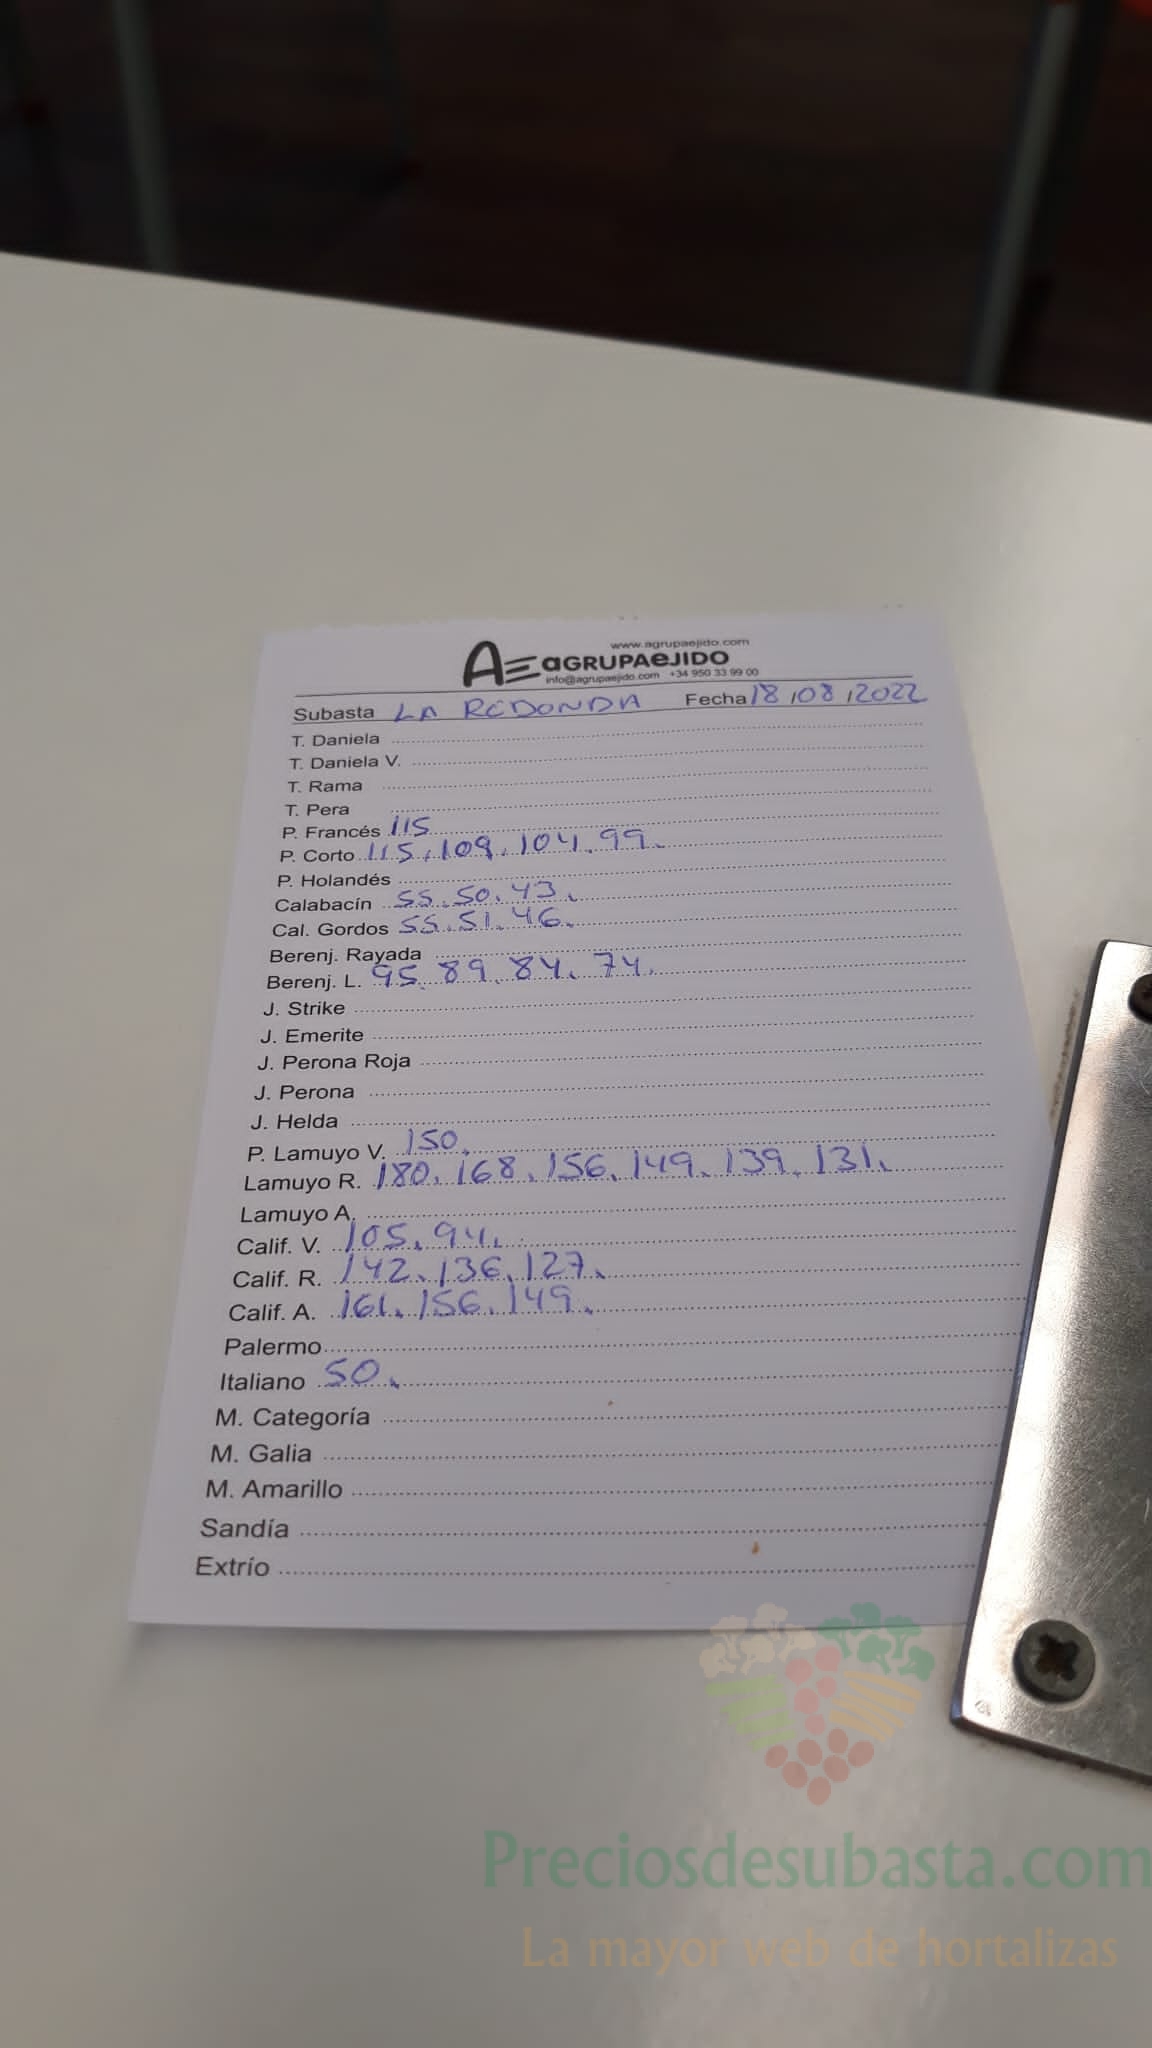 www.agrupaejido.com
AE aGRUPAeJIDO
info@agrupaejido.com +34 950 33 99 00
Subasta LA REDONDA Fecha 18/08/2022
T. Daniela
T. Daniela V.
T. Rama
T. Pera
P. Francés 115
P. Corto 115. 109. 104. 99.
P. Holandés
Calabacín 55. 50. 43.
Cal. Gordos 55. 51. 46.
Berenj. Rayada
Berenj. L. 95. 89. 84. 74.
J. Strike
J. Emerite
J. Perona Roja
J. Perona
J. Helda
P. Lamuyo V. 150.
Lamuyo R. 180. 168. 156. 149. 139. 131.
Lamuyo A.
Calif. V. 105. 94.
Calif. R. 142. 136. 127.
Calif. A. 161. 156. 149.
Palermo
Italiano 50.
M. Categoría
M. Galia
M. Amarillo
Sandía
Extrío
Preciosdesubasta.com
La mayor web de hortalizas